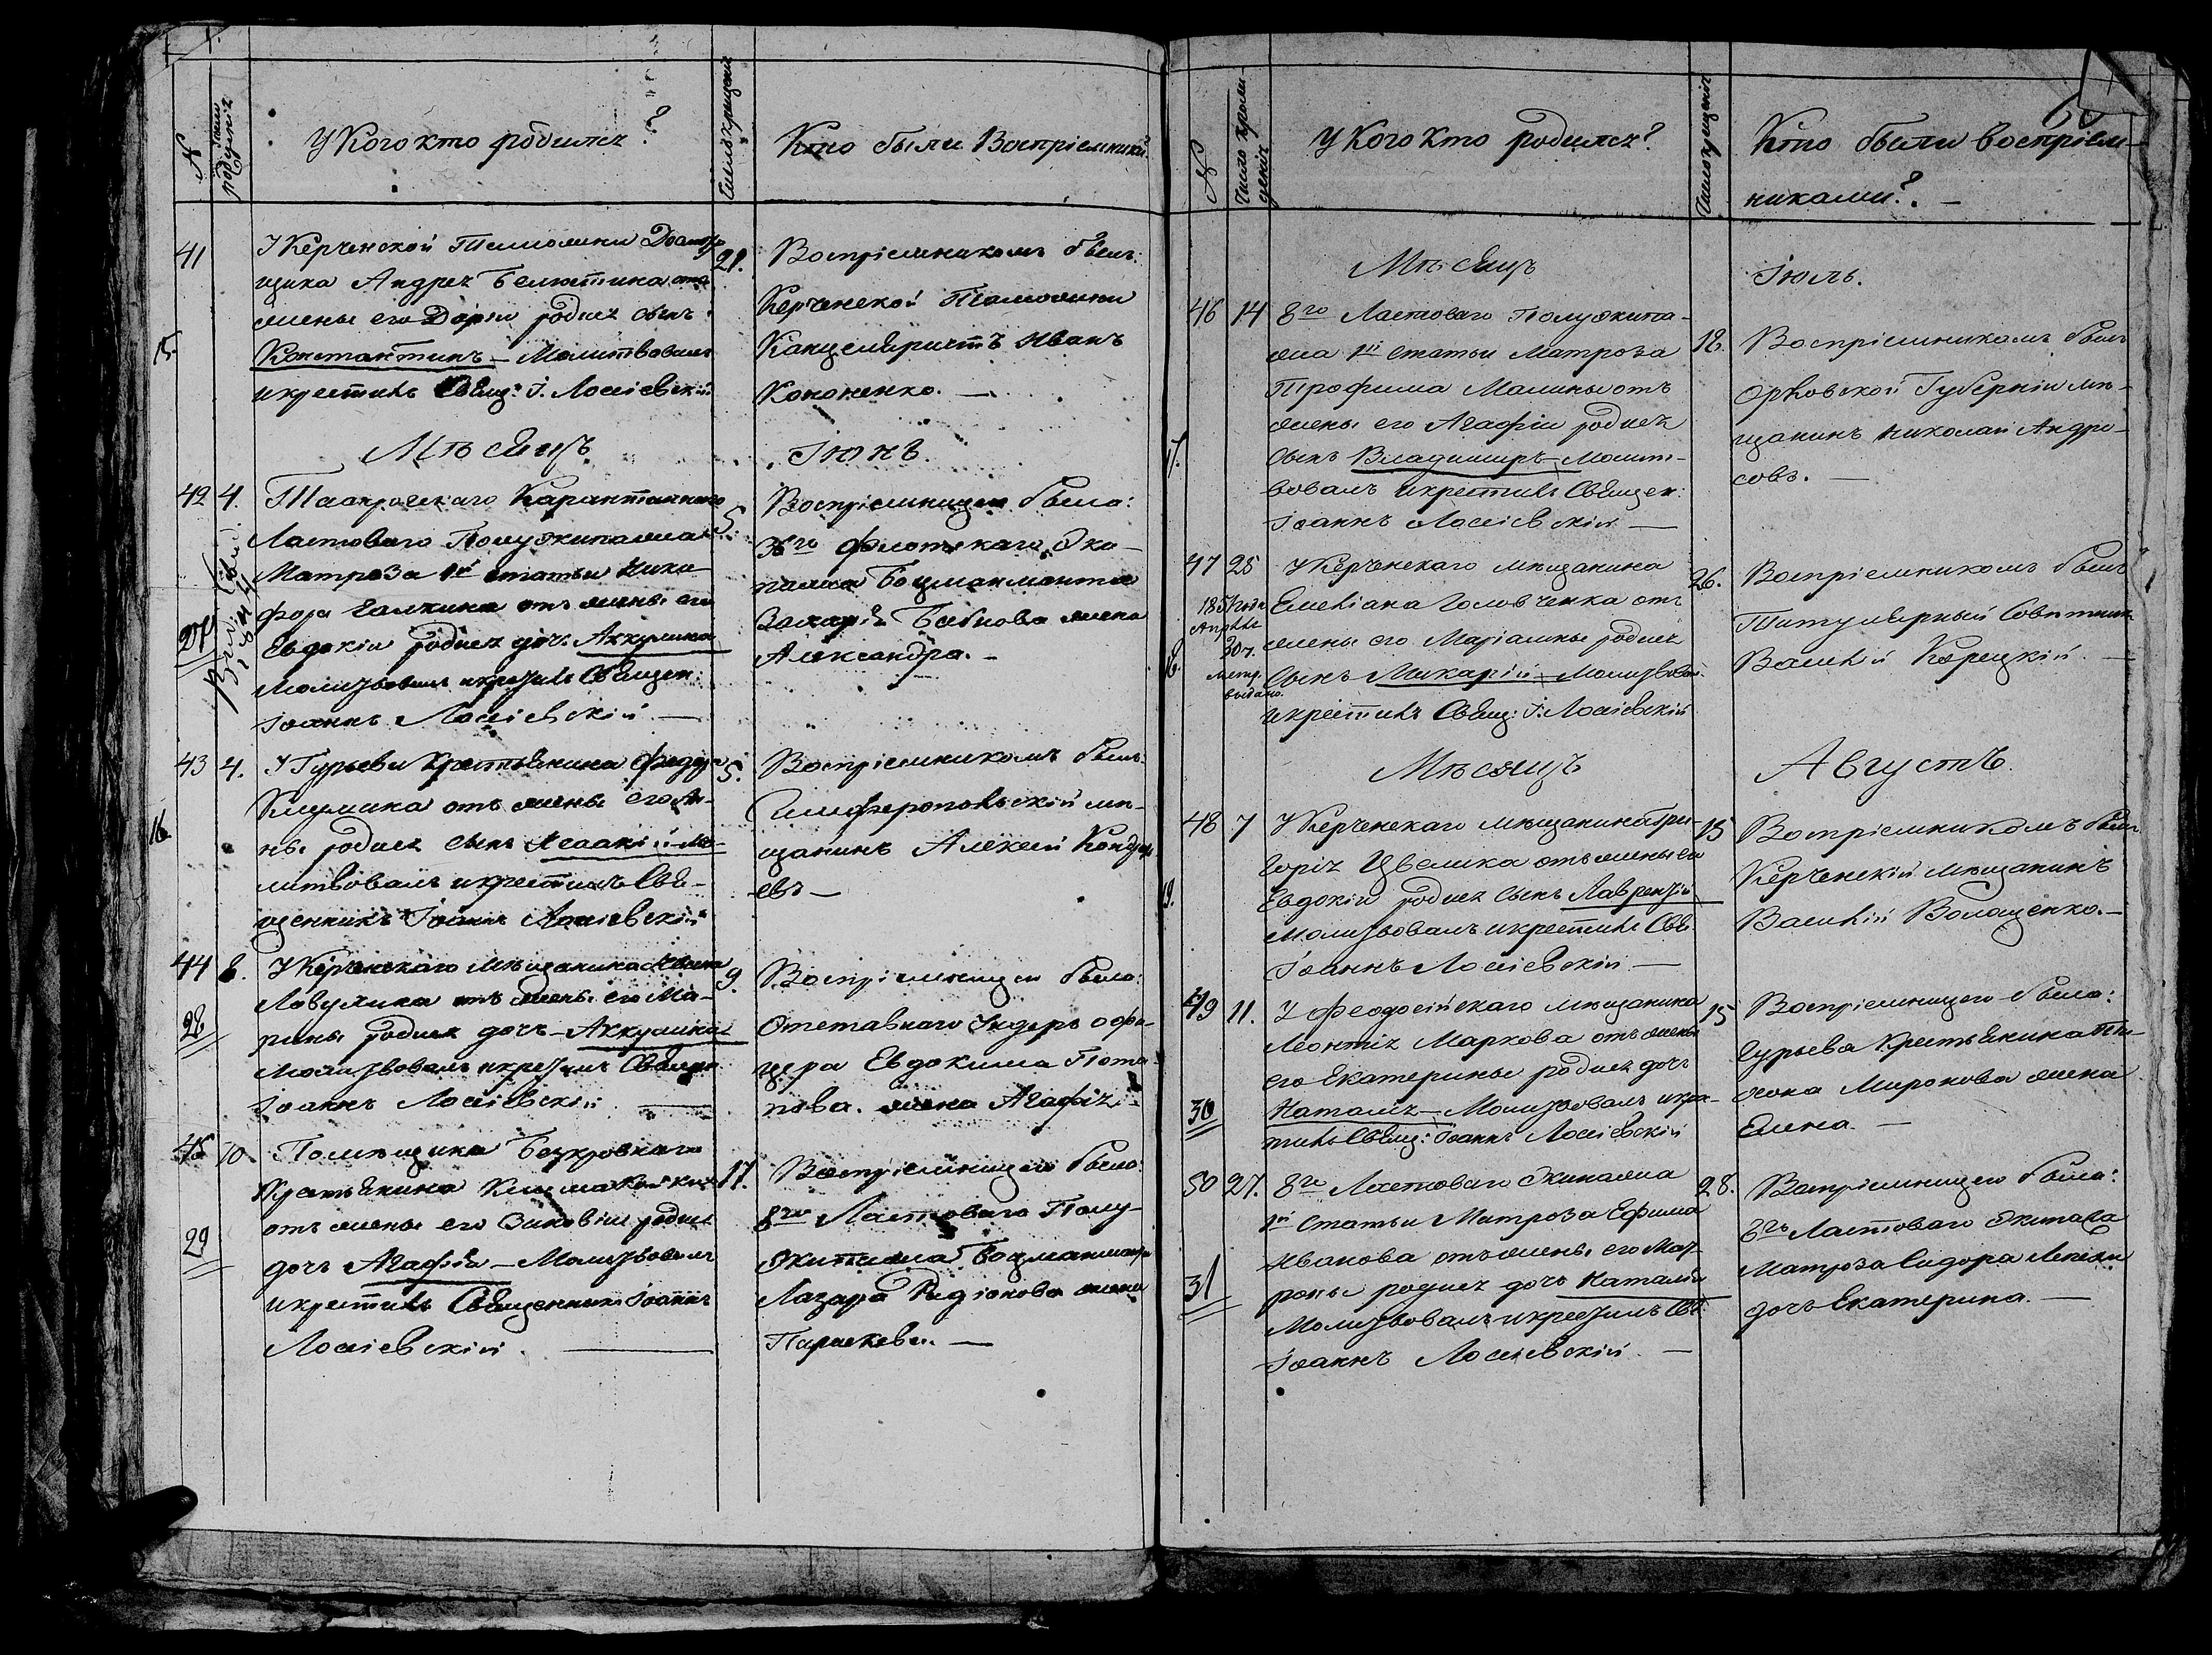 №
Число рожденія
У Кого кто родился?
Число крещенія
Кто были Воспріемники?
41
У Керченской Таможни Досмотр
щика Андрея отъ
жены его Дарьи родися сынъ
15.
Константинъ – Молитвовалъ
и крестилъ Свящ: І. Лосіевскій
21.
Воспріемникомъ былъ:
Керченской Таможни
Канцеляристъ Иванъ
Кононенко. —
Мѣсяцъ
Іюнь.
42
4.
Таганрогскаго Карантиннаго
Ластоваго Полуэкипажа
Матроза 1й статьи Ники
фора Галкина отъ жены его
27
Евдокіи родися дочь Аккулина
Молитвовалъ и крестилъ Священ:
Іоаннъ Лосіевскій. —
5.
Воспріемницею была:
36го Флотскаго Эки-
пажа Боцманмата
Захарія Бабкова жена
Александра. —
43
4.
У Гурьева Крестьянина Федора
Климика отъ жены его Ан-
16
ны родися сынъ Исаакій – Мо-
литвовалъ и крестилъ Свя-
щенникъ Іоаннъ Лосіевскій
5.
Воспріемникомъ былъ:
Симферопольскій мѣ-
щанинъ Алексей Кондра
евъ —
44
8.
У Керченскаго мѣщанина Ивана
Лавулина отъ жены его Ма-
28
рины родися дочь – Аккулина
Молитвовалъ и крестилъ Священ
Іоаннъ Лосіевскій —
9.
Воспріемницею была:
Отставнаго Ундеръ офи-
цера Евдокима Пота
пова. жена Агафія. –
45
10
Помѣщика Безкровнаго
Крестьянина
отъ жены его Зиновіи родися
29
дочь Агафія – Молитвовалъ
и крестилъ Священникъ Іоаннъ
Лосіевскій. —
17.
Воспріемницею была:
8го Ластоваго Полу-
Экипажа Боцманмата
Лазаря Родіонова жена
Параскева. —
№
Число рож-
денія
У Кого Кто родился?
Число крещенія
Кто были воспріем-
никами? —
Мѣсяцъ
Іюль.
46
14
8го Ластоваго Полуэкипа-
жа 1й статьи Матроза
Трофима Малины отъ
жены его Агафіи родися
17.
сынъ Владимиръ – Молит-
вовалъ и крестилъ Священ:
Іоаннъ Лосіевскій —
18.
Воспріемникомъ былъ
Орловской Губерніи мѣ-
щанинъ Николай Андро-
совъ. —
47
25
У Керченскаго мѣщанина
Емельяна Головченка отъ
жены его Маріамны родися
Сынъ Макарій – Молитвовал.
и крестилъ Свящ: І. Лосіевскій
Апрѣля
30 ч.
метр.
выдано.
26.
Воспріемникомъ былъ
Титулярный Совѣтник
Василій Корецкій. —
Мѣсяцъ
Августъ.
48
7
У Керченскаго мѣщанина Гри-
горія Цвелика отъ жены его
Евдокіи родися сынъ Лаврентій
Молитвовалъ и крестилъ Свя:
Іоаннъ Лосіевскій —
15
Воспріемникомъ былъ
Керченскій мѣщанинъ
Василій Волощенко. —
49
11.
У Феодосійскаго мѣщанина
Леонтія Маркова отъ жены
его Екатерины родися дочь
30
Наталія – Молитвовалъ и кре-
тилъ Свящ: Іоаннъ Лосіевскій
15
Воспріемницею была:
Гурьева Крестьянина Ти-
хона Миронова жена
Елена. —
50
27.
8го Ластоваго Экипажа
1й Статьи Матроза Ефима
Иванова отъ жены его Мат-
31
роны родися дочь Наталія
Молитвовалъ и крестилъ Св.
Іоаннъ Лосіевскій. —
28.
Воспріемницею была:
8го Ластоваго Экипажа
Матроза Сидора
дочь Екатерина. —